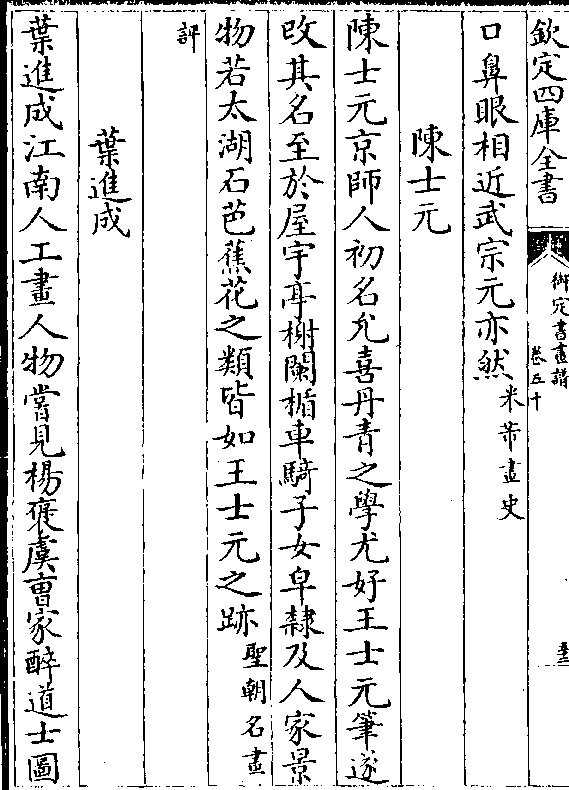 欽定四庫全書
御定書畫譜
卷五十
口鼻眼相近武宗元亦然米芾畫史
陳士元
陳士元京師人初名允喜丹青之學尤好王士元筆遂
改其名至於屋宇亭榭闌楯車騎子女皁隸及人家景
物若太湖石芭蕉花之類皆如王士元之跡聖朝名畫
評
葉進成
葉進成江南人工畫人物嘗見楊褒虞曹家醉道士圖